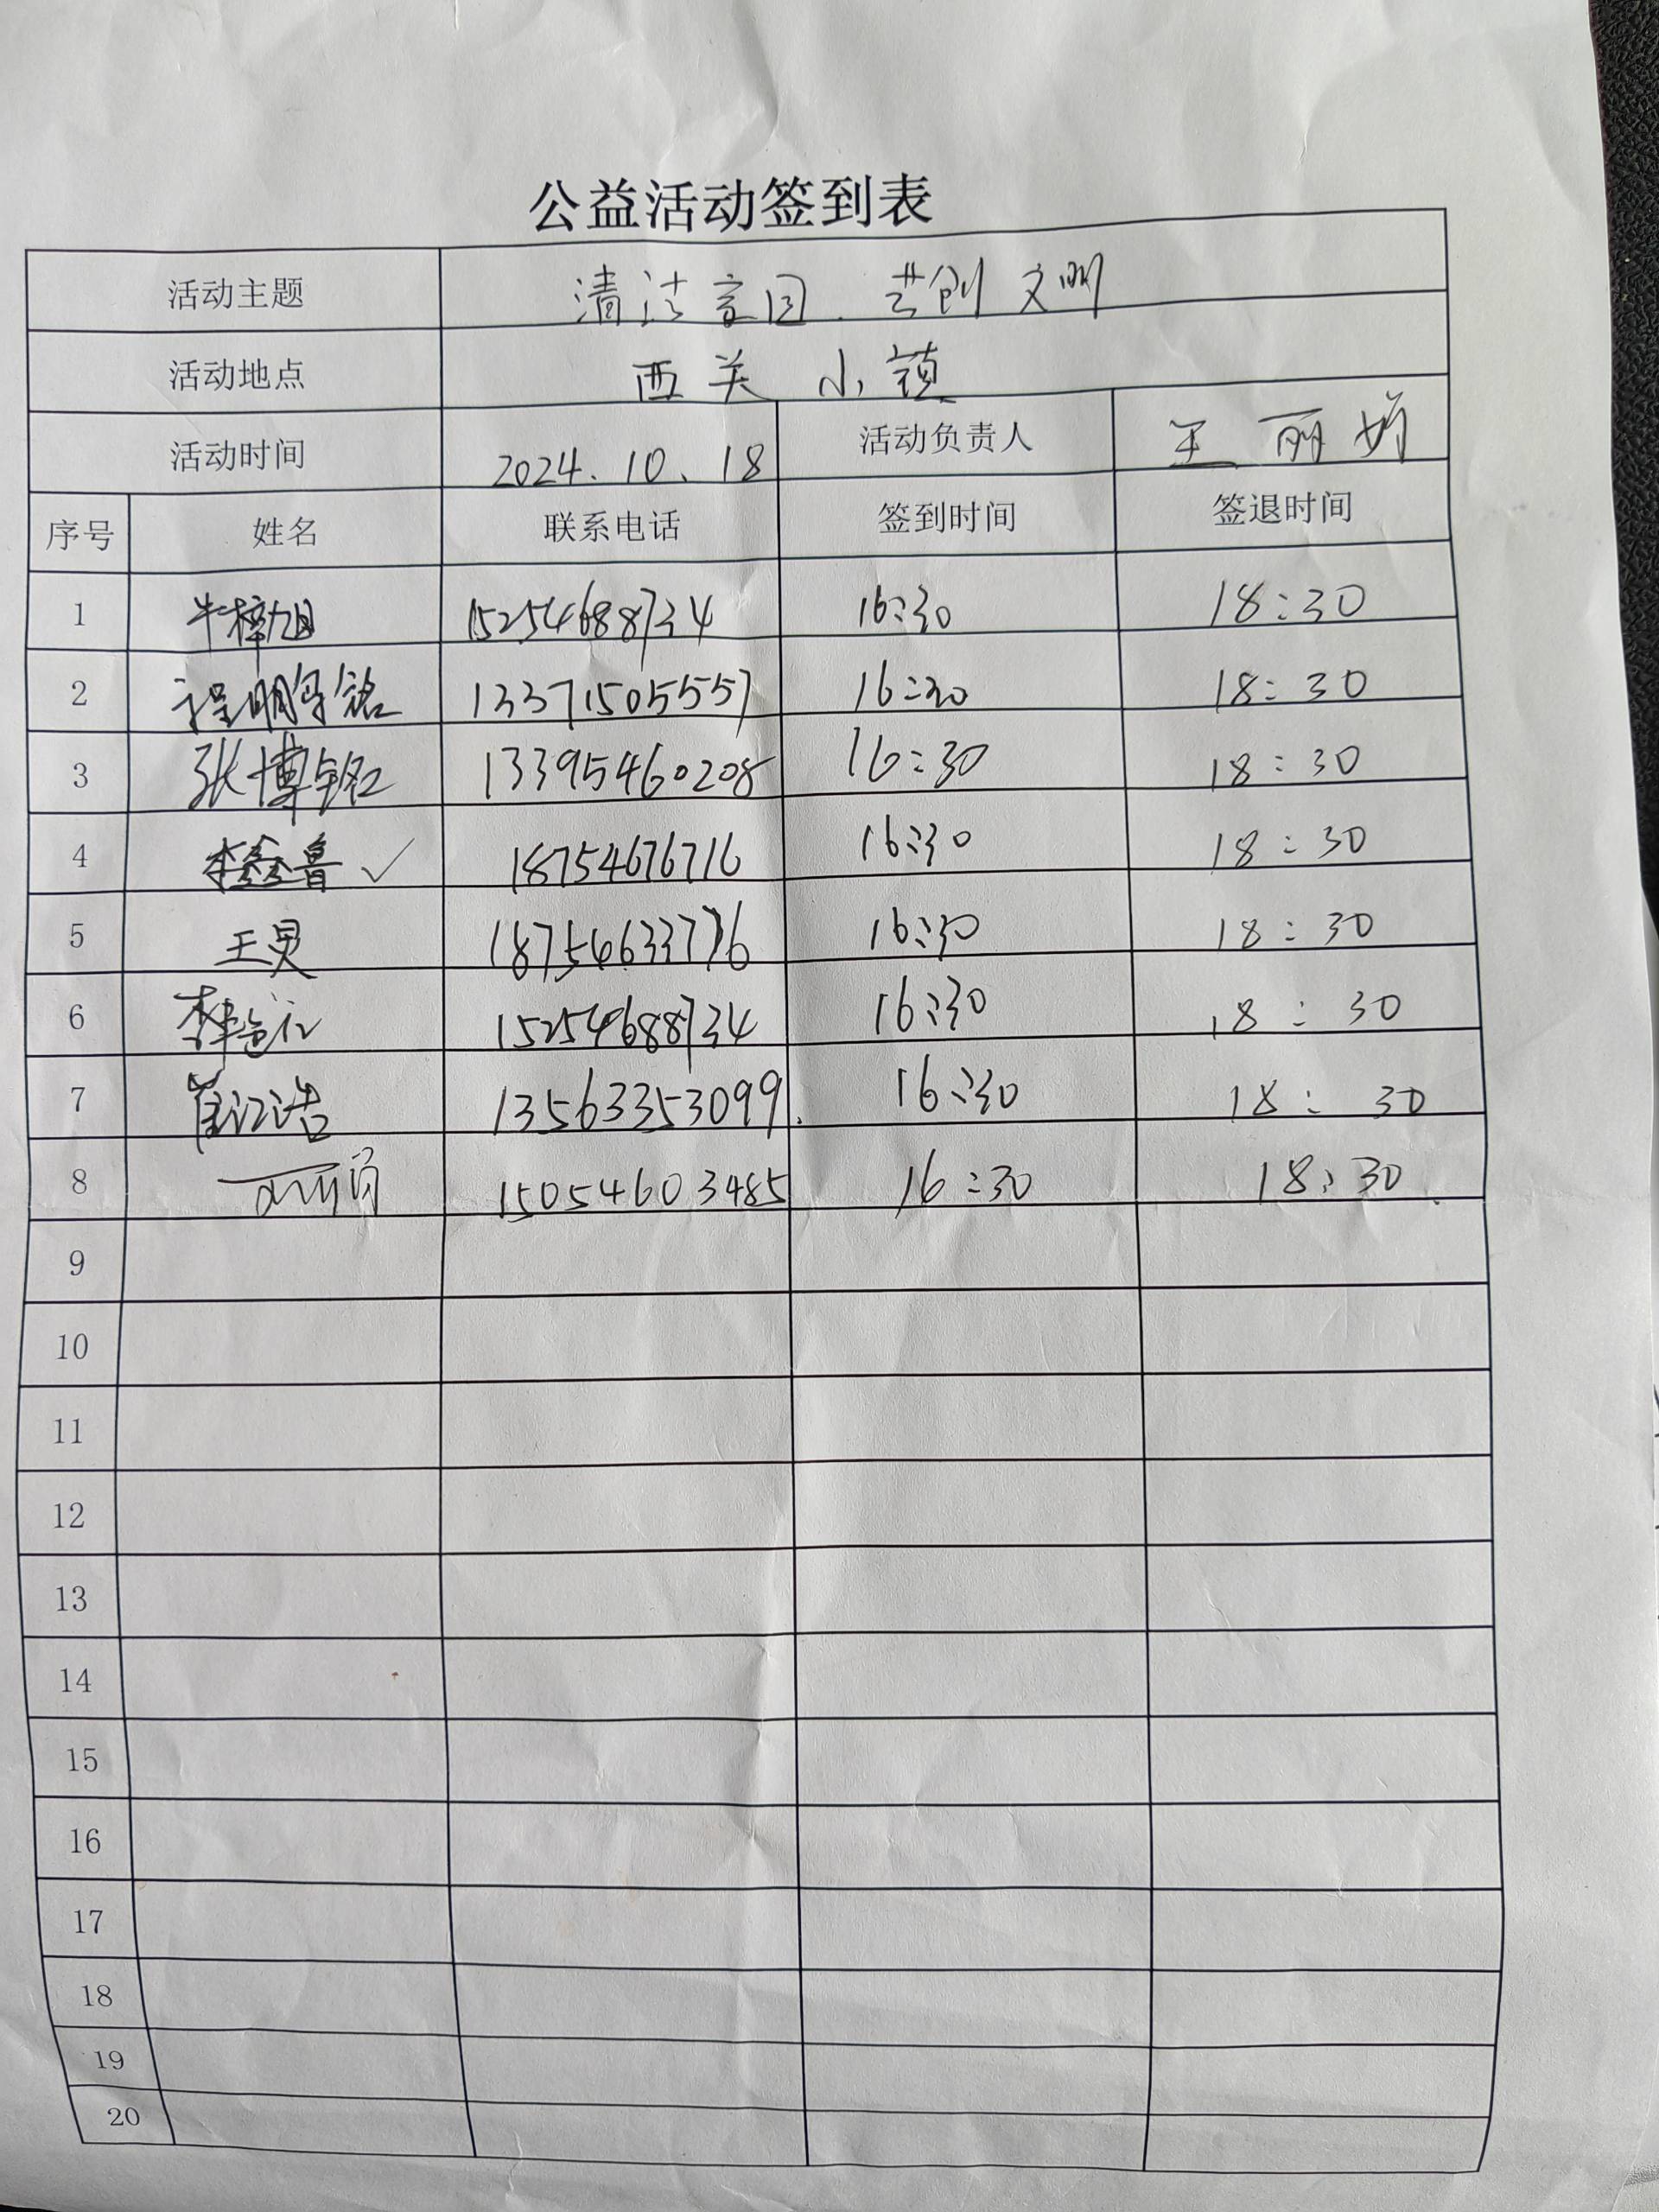 公益活动签到表
活动主题 清洁家园、共创文明
活动地点 西关小镇
活动时间 2024.10.18 活动负责人 王丽娟
序号 姓名 联系电话 签到时间 签退时间
1 牛梓旭 15254688734 16:30 18:30
2 程明 铭 13371505557 16:30 18:30
3 张博铭 13395460208 16:30 18:30
4 李鑫鲁 ✓ 18754676716 16:30 18:30
5 王昊 18754633776 16:30 18:30
6 15254688734 16:30 18:30
7 崔江浩 13563353099 16:30 18:30
8 15054603485 16:30 18:30
9
10
11
12
13
14
15
16
17
18
19
20